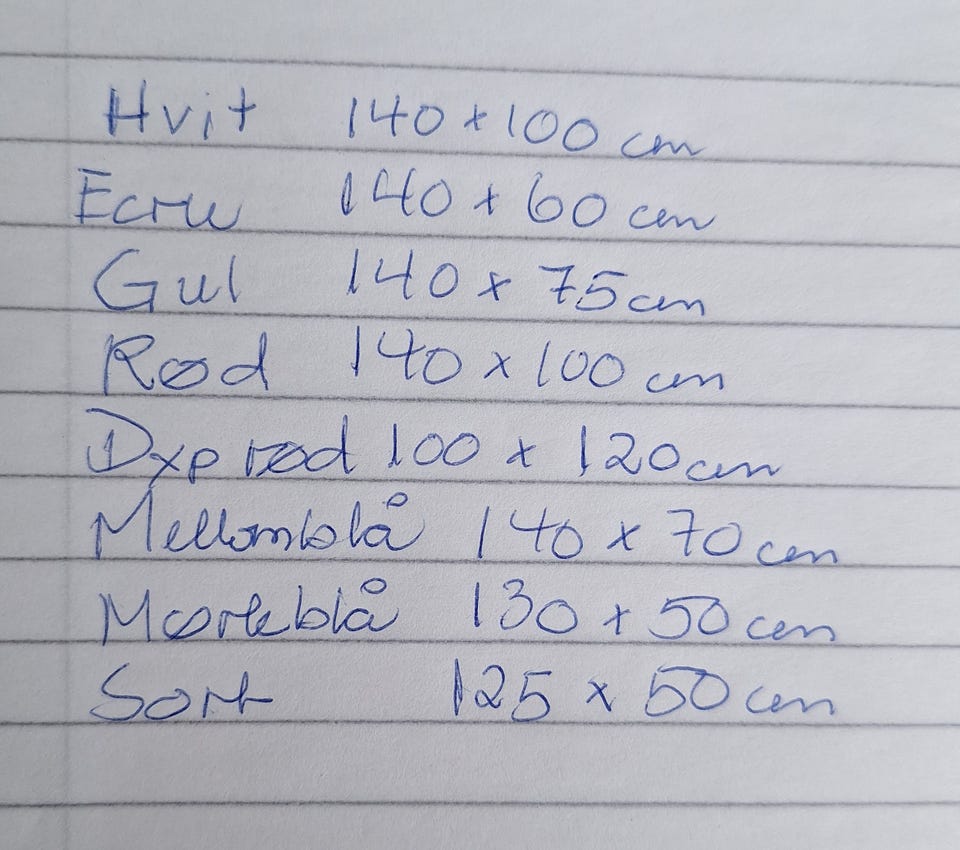 Hvit 140 x 100 cm
Ecru 140 x 60 cm
Gul 140 x 75 cm
Rød 140 x 100 cm
Dyp rød 100 x 120 cm
Mellomblå 140 x 70 cm
Mørkeblå 130 x 50 cm
Sort 125 x 50 cm